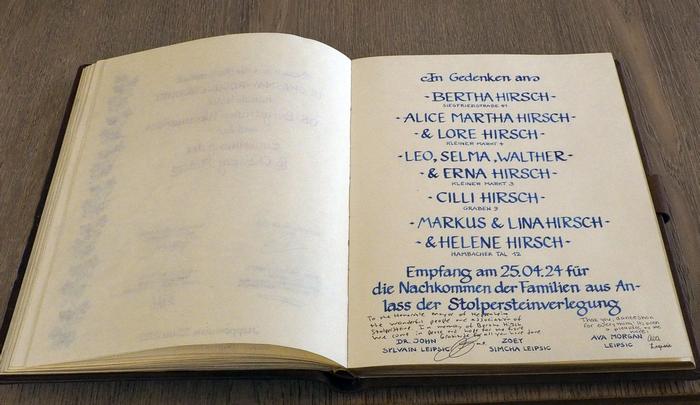 In Gedenken an
- BERTHA HIRSCH -
SIEGFRIEDSTRAßE 41
- ALICE MARTHA HIRSCH -
- & LORE HIRSCH -
KLEINER MARKT 4
- LEO, SELMA, WALTHER -
- & ERNA HIRSCH -
KLEINER MARKT 3
- CILLI HIRSCH -
GRABEN 9
- MARKUS & LINA HIRSCH -
- & HELENE HIRSCH -
HAMBACHER TAL 12
Empfang am 25.04.24 für
die Nachkommen der Familien aus An-
lass der Stolpersteinverlegung
To the Honorable Mayor of Heppenheim
the wonderful people and association of
Stolpersteine. In memory of Bertha Hirsch
We come in peace and hope for the future
DR. JOHN
SYLVAIN LEIPSIC
ZOEY
SIMCHA LEIPSIC
for everything
AVA MORGAN
LEIPSIC
Ava
Leipsic